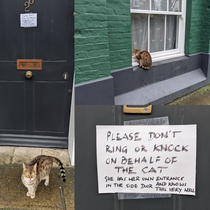 PLEASE DON'T
RING OR KNOCK
ON BEHALF OF
THE CAT
SHE HAS HER OWN ENTRANCE
IN THE SIDE DOOR AND KNOWS
THIS VERY WELL